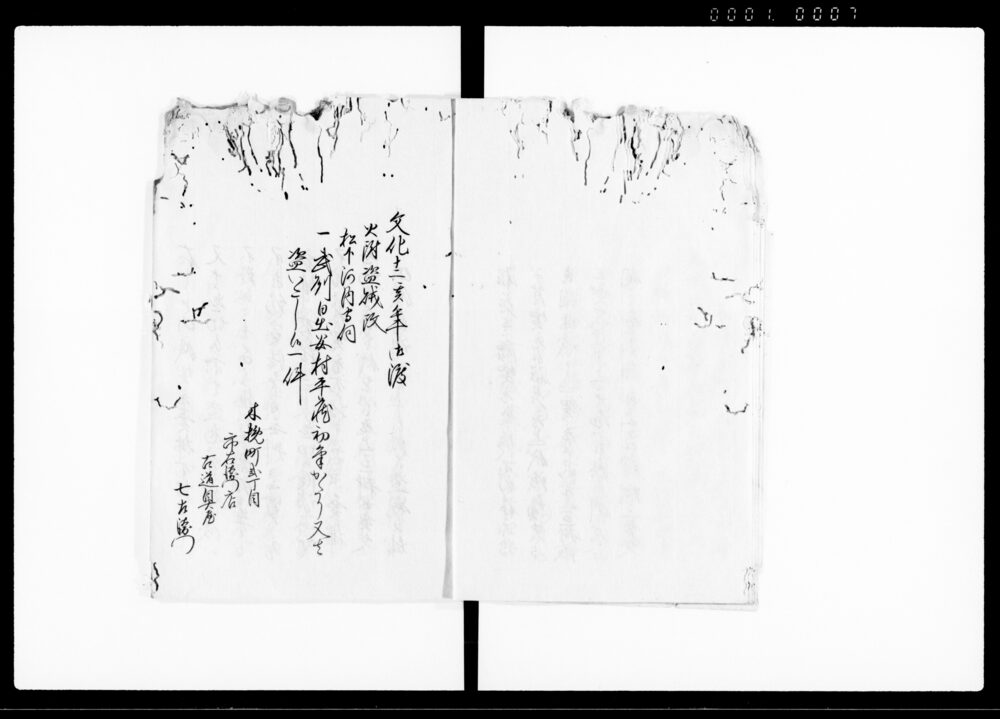 0001.0007
文化十二亥年御渡
火附盗賊改
松下河内守伺
一武州日出安村平蔵初筆かたり又は
盗いたし候一件
木挽町弐丁目
市右衛門店
古道具屋
七右衛門